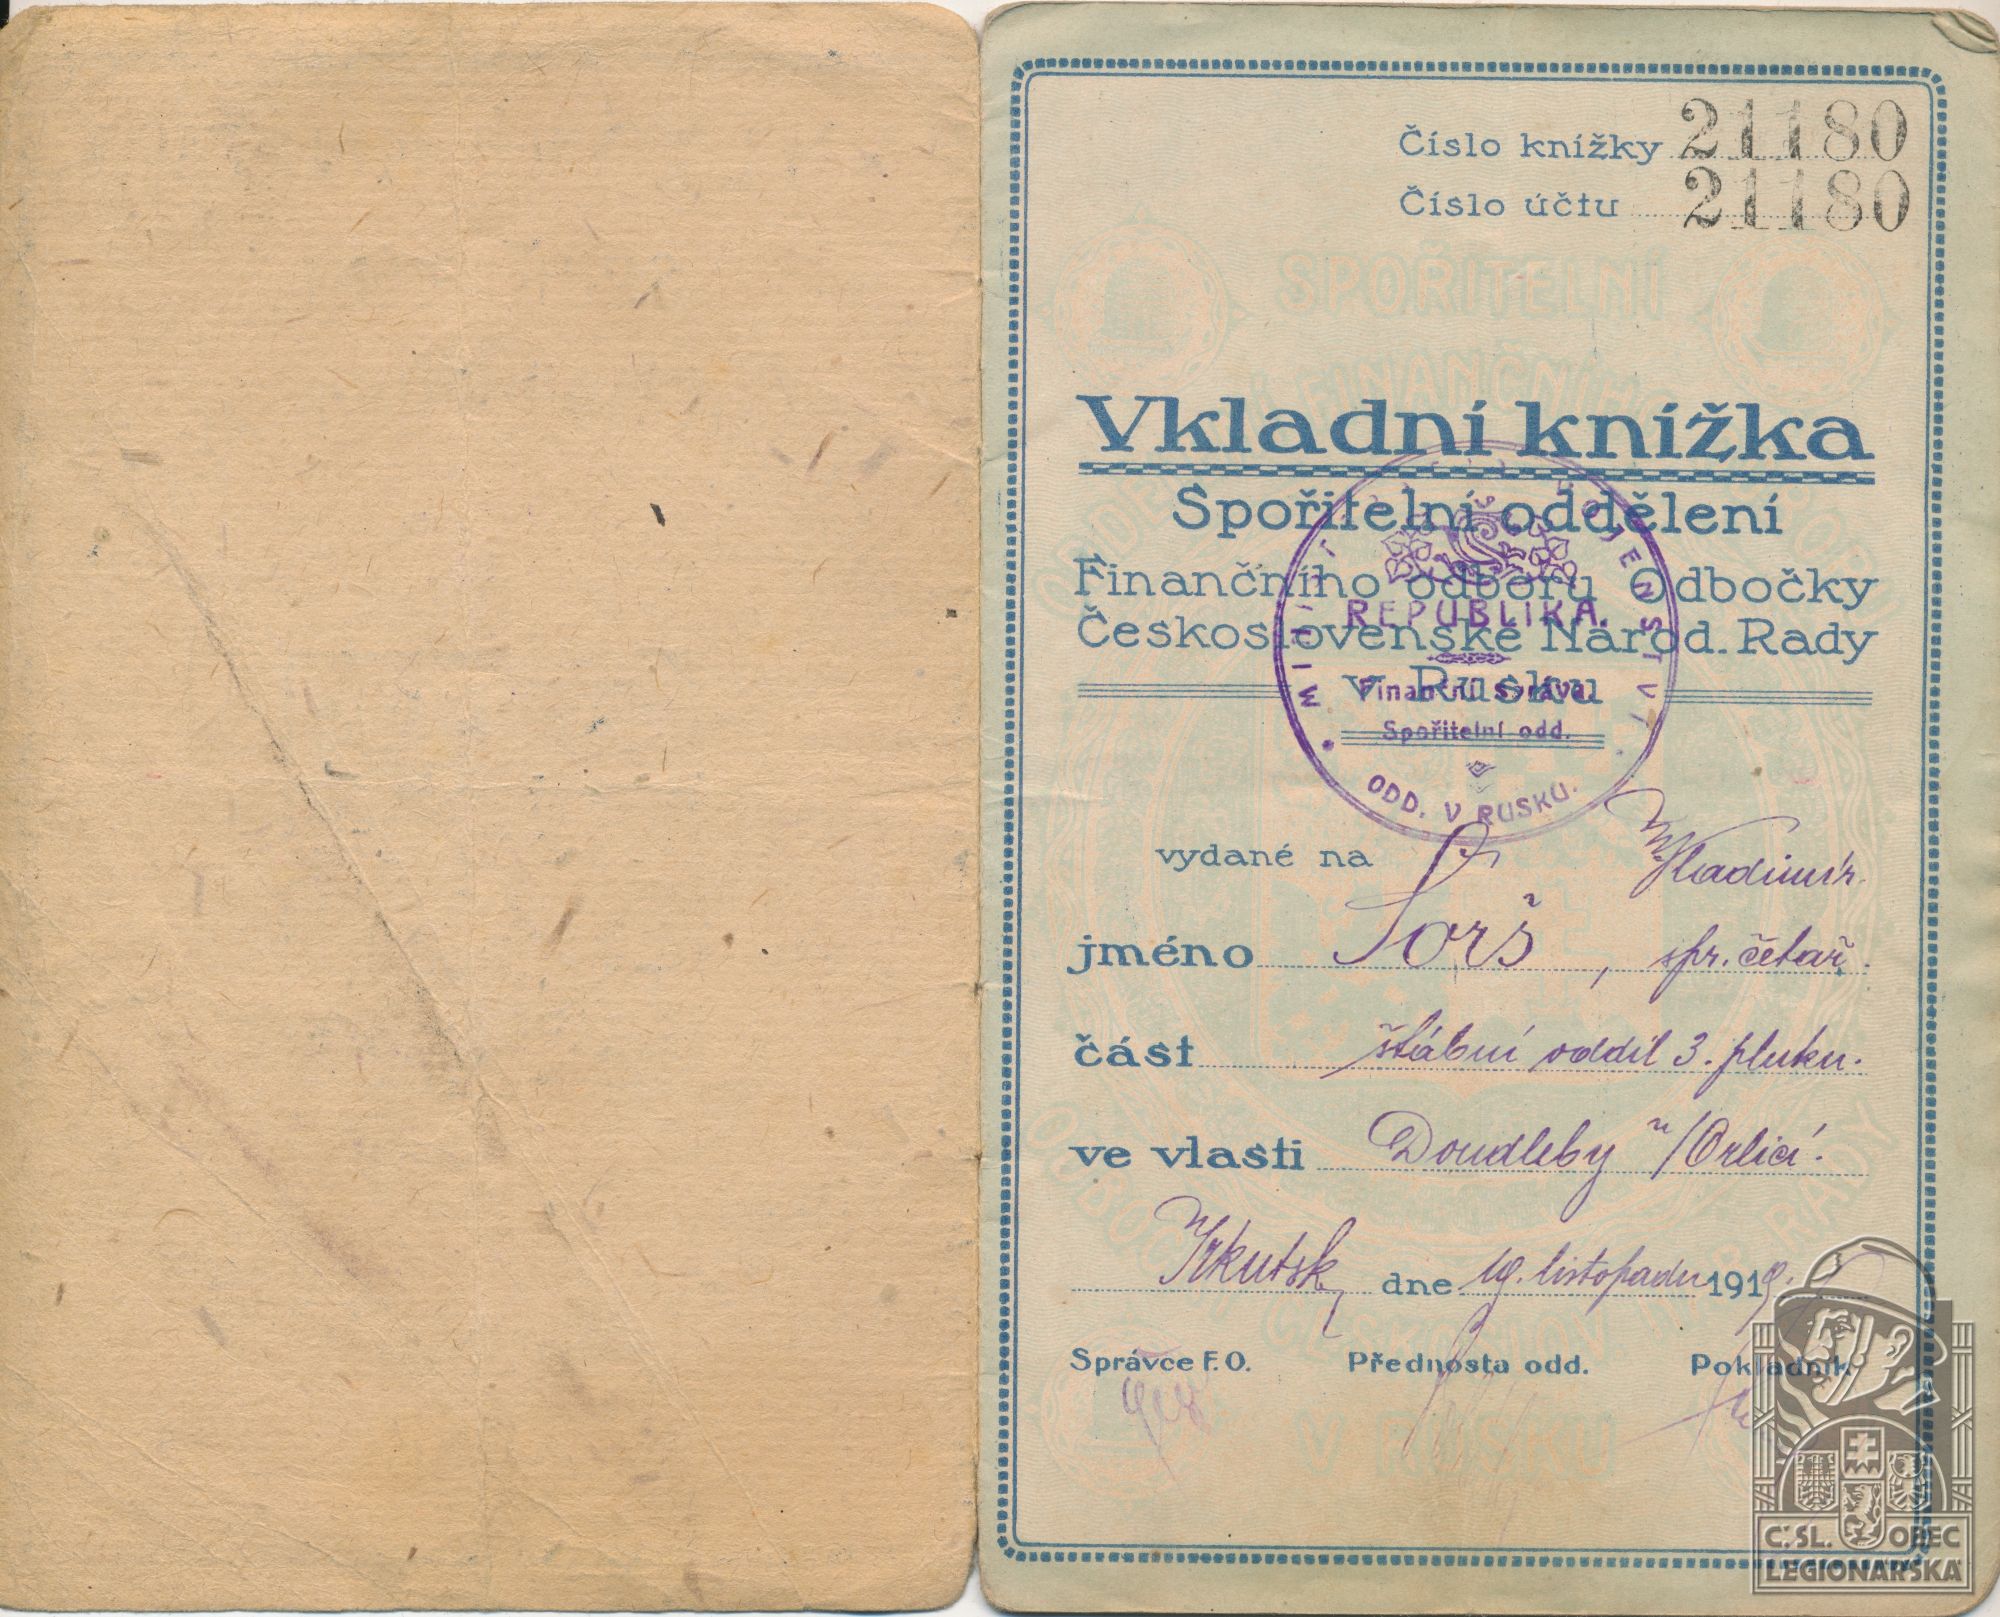 Číslo knížky 21180
Číslo účtu 21180
SPOŘITELNÍ
FINANČNÍHO
Vkladní knížka
Spořitelní oddělení
Finančního odboru Odbočky
Československé Národ. Rady
v Rusku
REPUBLIKA.
Finanční správa.
Spořitelní odd.
ODD. V RUSKU.
vydané na
Vladimír
jméno Vorš, spr. četař.
část štábní oddíl 3. pluku.
ve vlasti Doudleby n/Orlicí.
Irkutsk, dne 19. listopadu 1919.
Správce F. O. Přednosta odd. Pokladník
V RUSKU
Č.SL. OBEC
LEGIONÁŘSKÁ